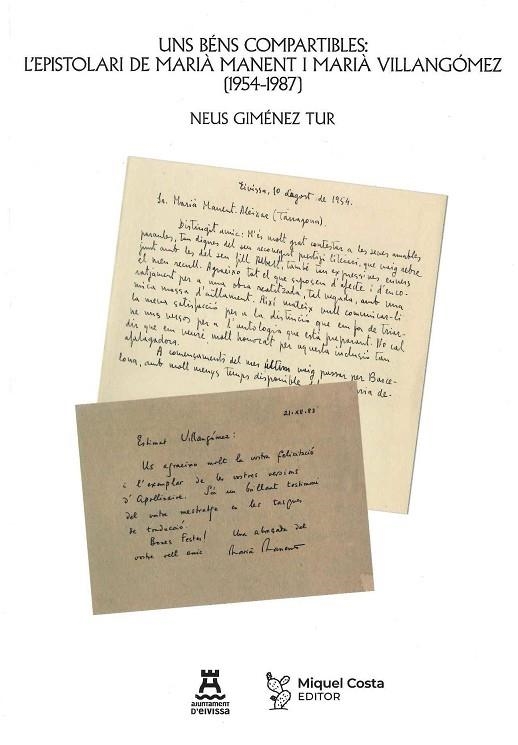 UNS BÉNS COMPARTIBLES:
L'EPISTOLARI DE MARIÀ MANENT I MARIÀ VILLANGÓMEZ
(1954-1987)
NEUS GIMÉNEZ TUR
Eivissa, 10 d'agost de 1954.
Sr. Marià Manent. Aleixar (Tarragona).
Distingit amic: M'és molt grat contestar a les seves amables
paraules, tan dignes del seu reconegut prestigi literari, que vaig rebre
junt amb les del seu fill Albert, també tan expressives, envers
el meu recull. Agraeixo tot el que suposen d'afecte i d'enco-
ratjament per a una obra realitzada, tal vegada, amb una
mica massa d'aïllament. Així mateix vull comunicar-li
la meva satisfacció per a la distinció que em fa de triar-
ne uns versos per a l'antologia que està preparant. No cal
dir que em veuré molt honorat per aquesta inclusió tan
afalagadora.
A començaments del mes últim vaig passar per Barce-
lona, amb molt menys temps disponible
21.XII.83
Estimat Villangómez:
Us agraeixo molt la vostra felicitació
i l'exemplar de les vostres versions
d'Apollinaire. Són un brillant testimoni
del vostre mestratge en les tasques
de traducció.
Bones Festes! Una abraçada del
vostre vell amic Marià Manent
AJUNTAMENT
D'EIVISSA
Miquel Costa
EDITOR